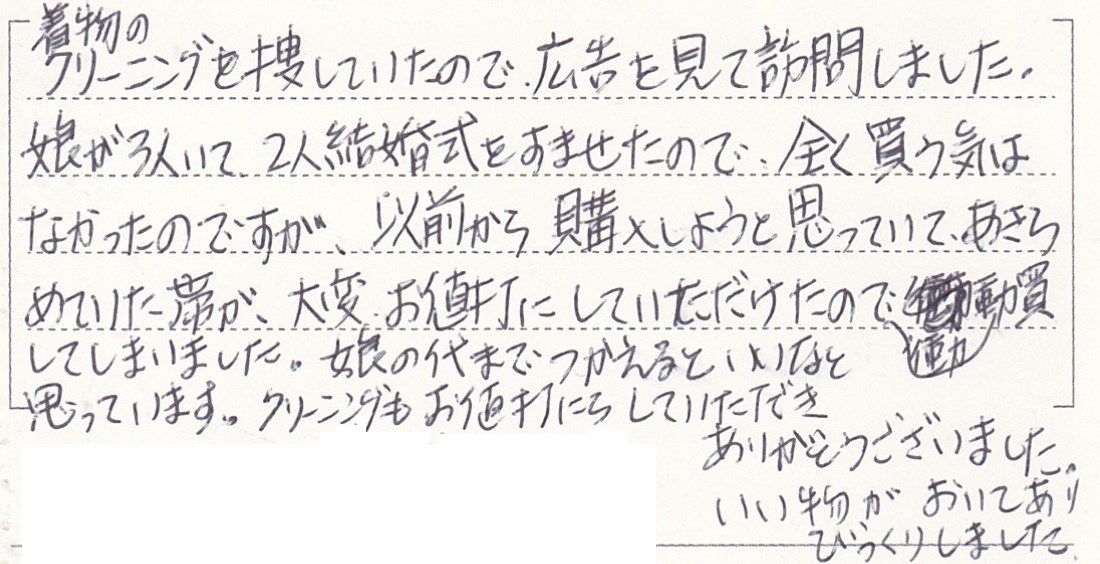 着物の
クリーニングを捜していたので、広告を見て訪問しました。
娘が3人いて、2人結婚式をすませたので、全く買う気は
なかったのですが、以前から購入しようと思っていて、あきら
めていた帯が、大変お値打にしていただけたので、衝動買
してしまいました。娘の代までつかえるといいなと
思っています。クリーニングもお値打にしていただき
ありがとうございました。
いい物がおいてあり
びっくりしました